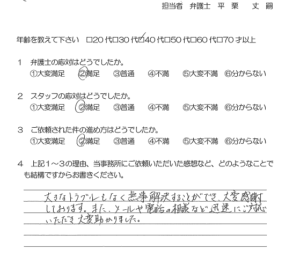 担当者 弁護士 平 栗 丈 嗣
年齢を教えて下さい □20代□30代□40代□50代□60代□70才以上
1 弁護士の応対はどうでしたか。
①大変満足 ②満足 ③普通 ④不満 ⑤大変不満 ⑥分からない
2 スタッフの応対はどうでしたか。
①大変満足 ②満足 ③普通 ④不満 ⑤大変不満 ⑥分からない
3 ご依頼された件の進め方はどうでしたか。
①大変満足 ②満足 ③普通 ④不満 ⑤大変不満 ⑥分からない
4 上記1~3の理由、当事務所にご依頼いただいた感想など、どのようなことで
も結構ですからお書きください。
大きなトラブルもなく無事解決することができ、大変感謝
しております。また、メールや電話の相談など迅速にご対応
いただき大変助かりました。